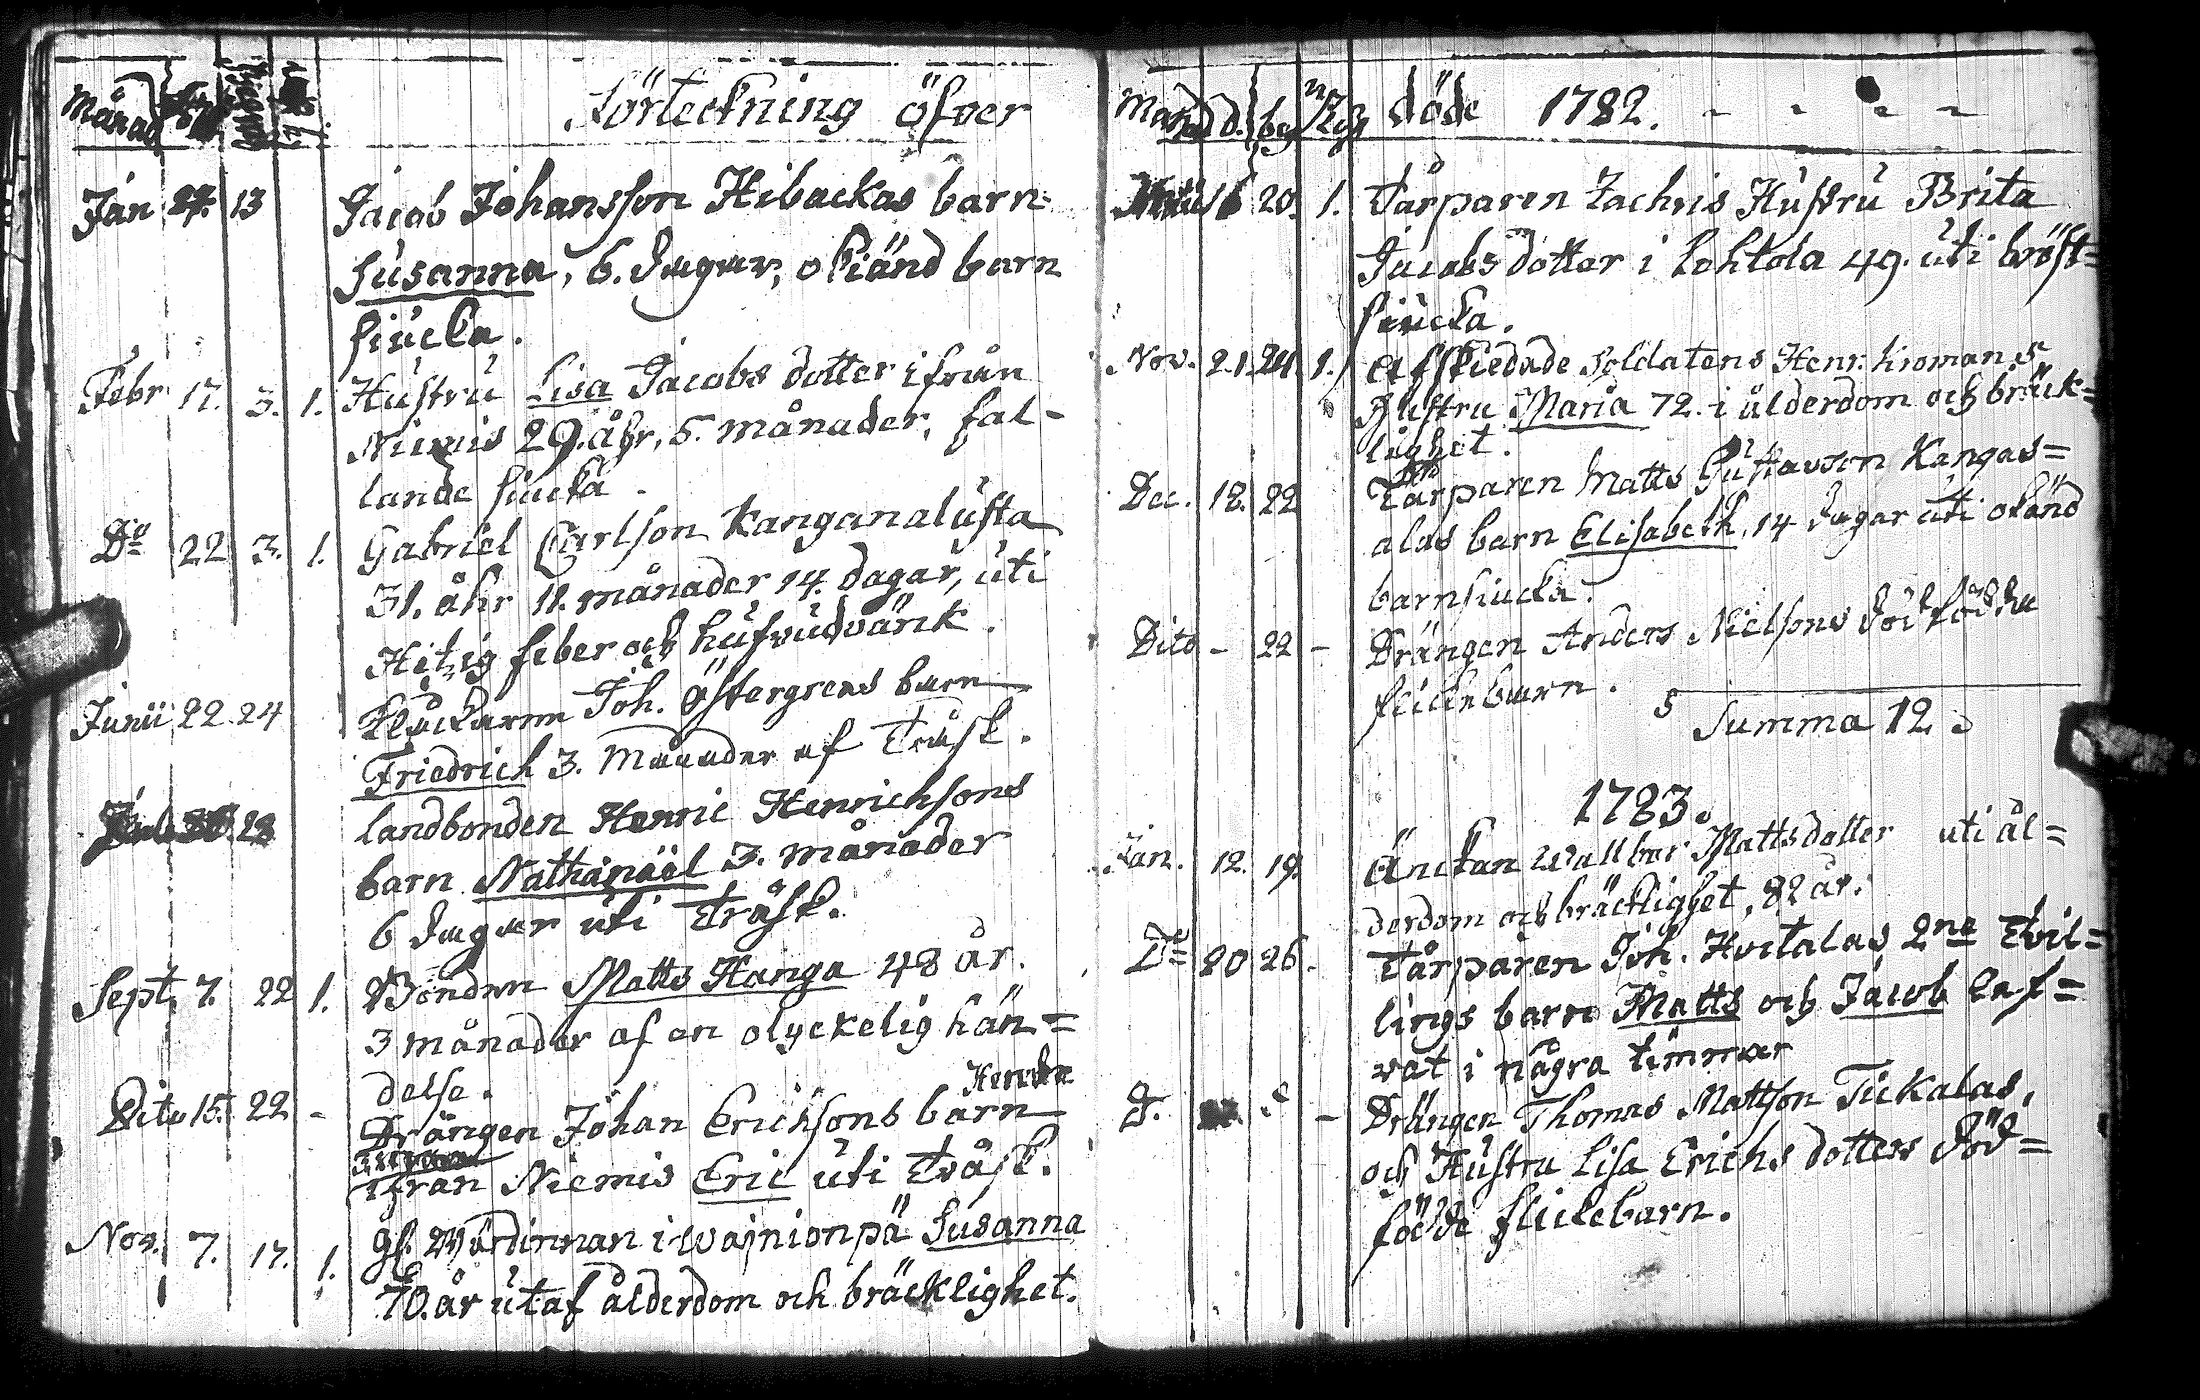 Månad
Förteckning öfver
Jan 27. 13 Jacob Johansson Hibackas barn
Susanna, 6. dagar, okiänd barn
siucka.
Febr 17. 3. 1. Hustru Lisa Jacobs dotter ifrån
Niemis 29. åhr, 5. månader, fal-
lande siucka.
Do 22 3. 1. Gabriel Carlson Kanganalusta
31. åhr 11. månader 14. dagar, uti
Hitzig feber och hufvudvärk.
Junii 22 24 Klockaren Joh. Östergrens barn
Friedrich 3. månader af Tråsk.
28 landbonden Henric Henrichsons
barn Nathanaël 3. månader
6 dagar uti Tråsk.
Sept. 7. 22 1. Bonden Matts Hanga 48 år.
3 månader af en olyckelig hän=
delse.
Dito 15. 22 - Drängen Johan Erichsons barn
ifrån Niemis Eric uti Tråsk.
Nov. 7. 17. 1. gl. Wärdinnan i Wainionpä Susanna
70. år utaf ålderdom och bräcklighet.
Månad d. beg döde 1782. - - - -
16 20. 1. Tårparen Zachris Hustru Brita
Jacobs dotter i Lohtola 49. uti bröst=
siucka.
Nov. 21. 24. 1. Afskiedade Soldatens Henr. Kromans
Hustru Maria 72. i ålderdom och bräck=
lighet.
Dec. 18. 22 Tårparen Matts Gustavson Kangas=
alas barn Elisabeth, 14 dagar uti okänd
barnsiucka.
Dito - 22 - Drängen Anders Nielsons dödfödda
flickebarn.
Summa 12.
1783.
Jan. 12. 19. Änckan Wallbor Mattsdotter uti ål=
derdom och bräcklighet, 82 år.
Do 20 26. Tårparen Joh. Hoitalas 2ne Tvil=
lings barn Matts och Jacob Lef=
vat i några timmar
D. - Drängen Thomas Mattson Tuckalas,
och Hustru Lisa Erichs dotters död=
födde flickebarn.